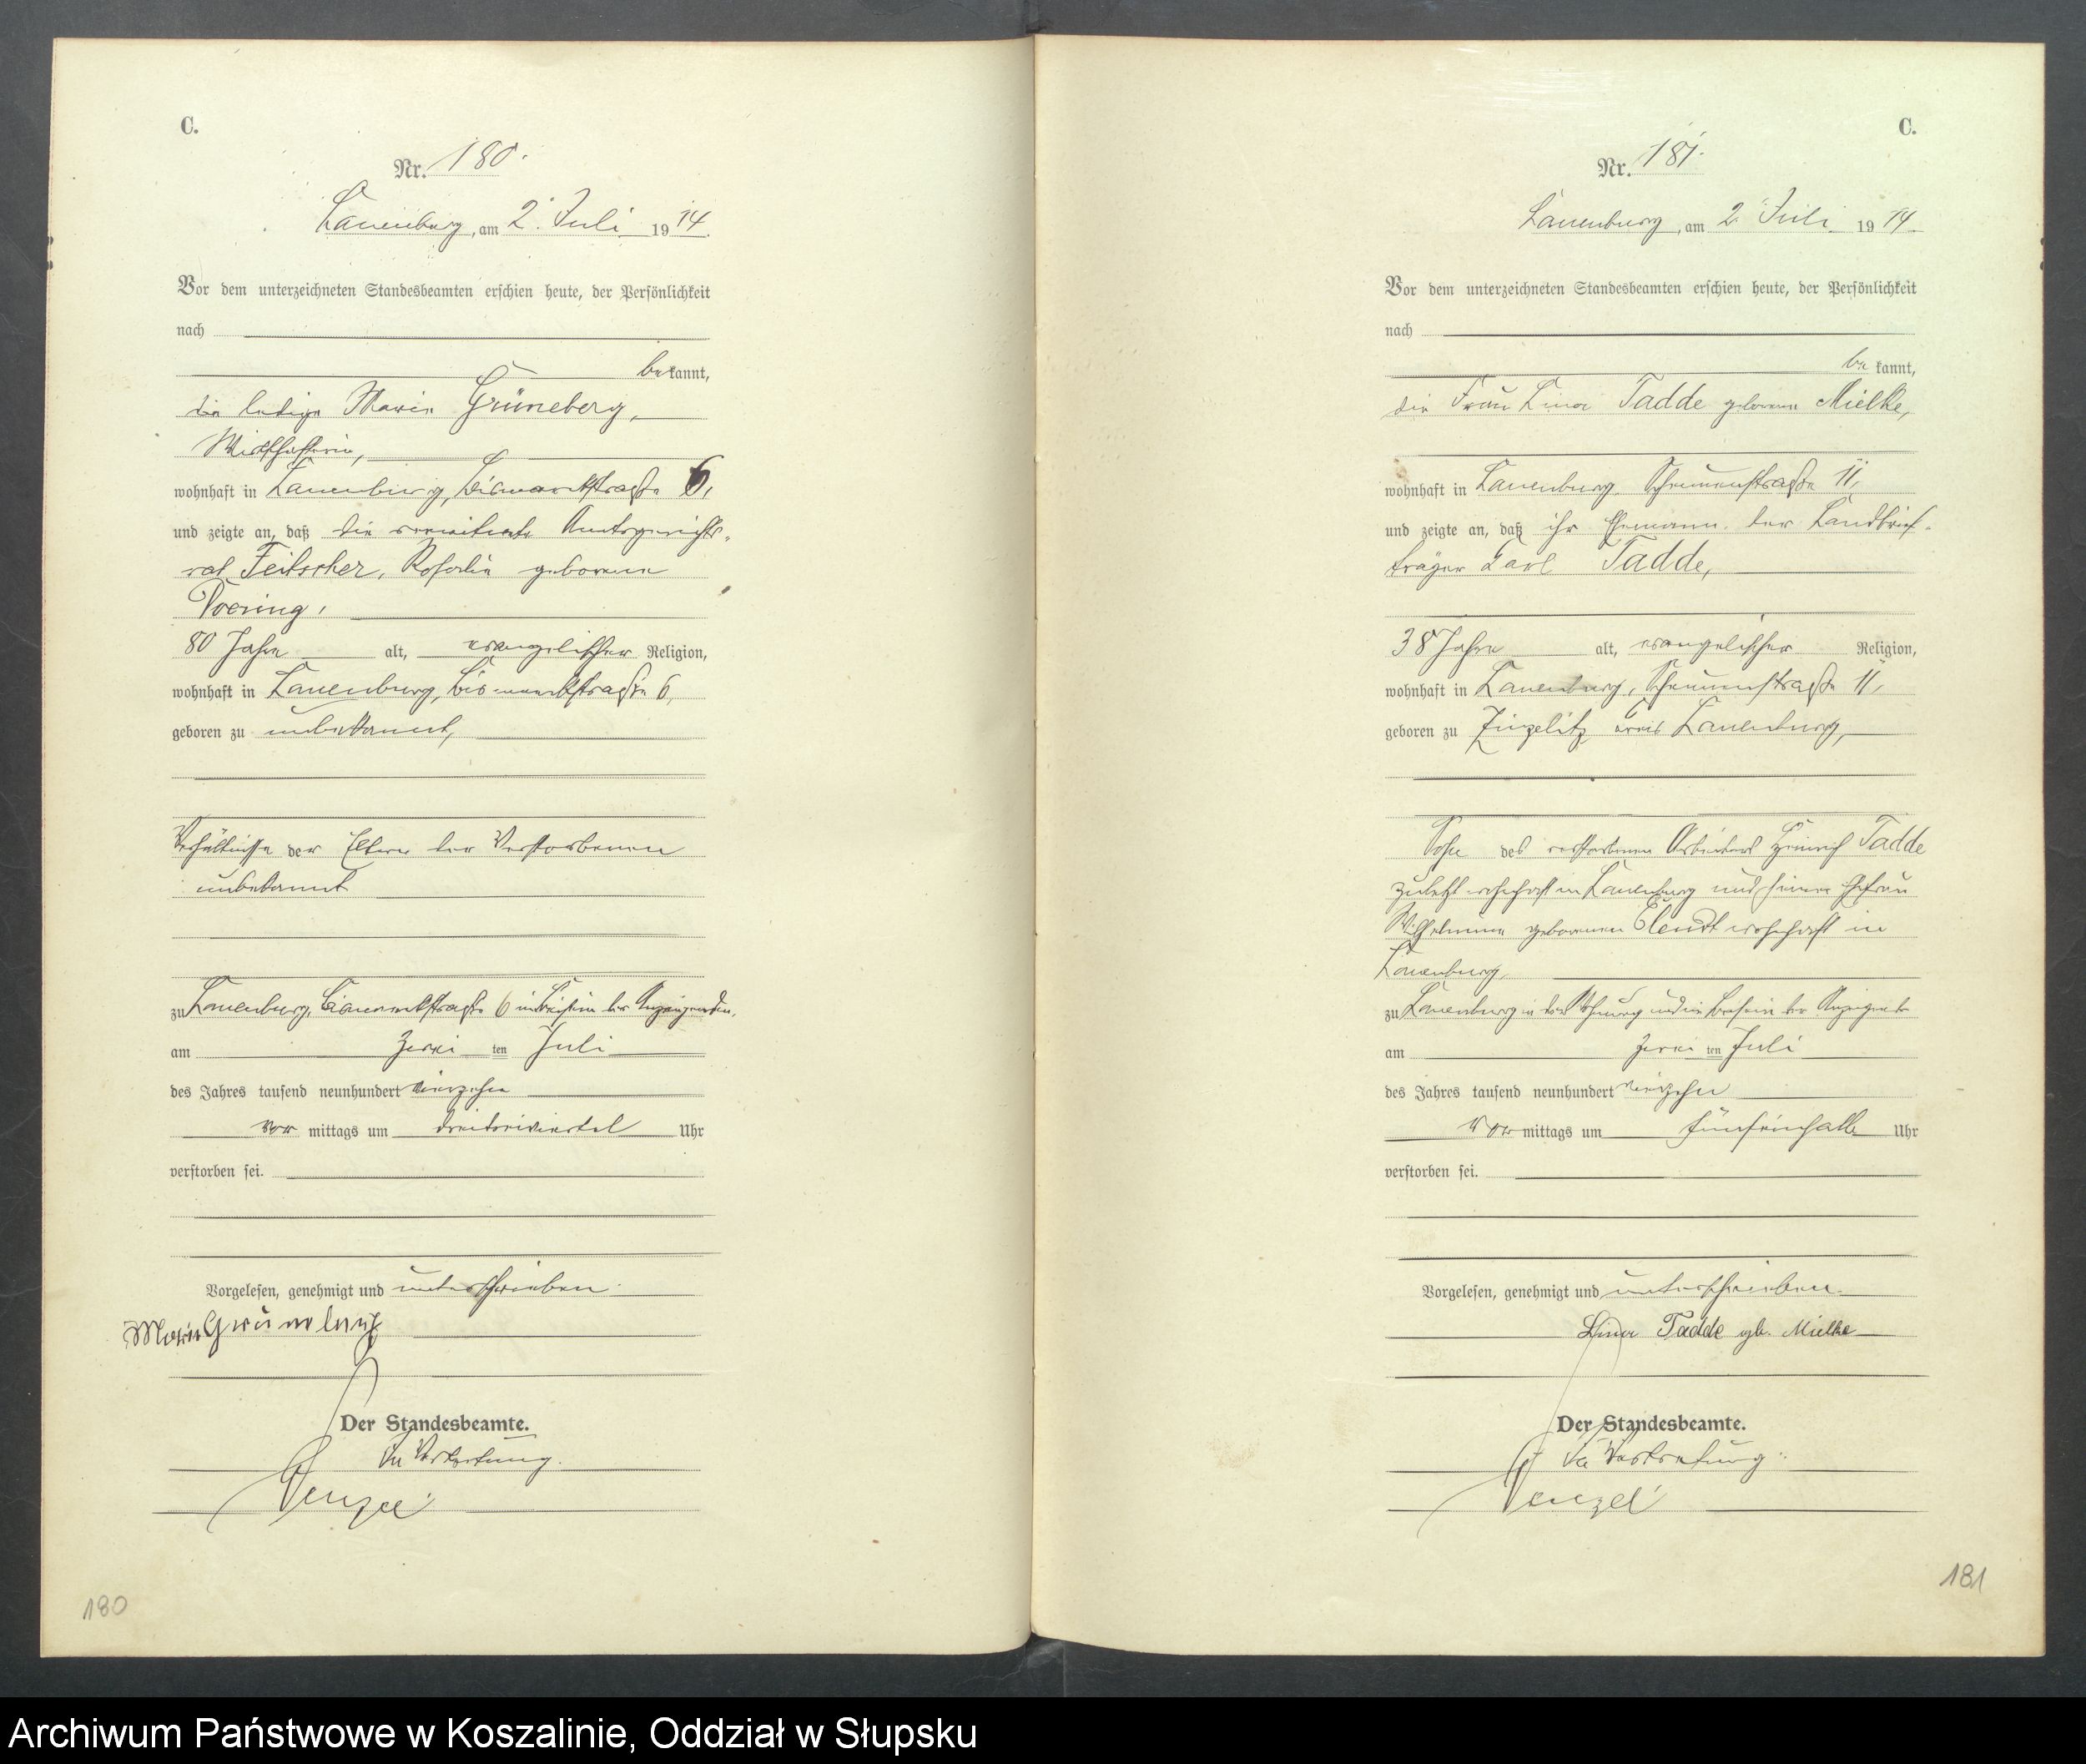 C.
Nr. 180.
Lauenburg, am 2. Juli 1914.
Vor dem unterzeichneten Standesbeamten erschien heute, der Persönlichkeit
nach
bekannt,
die ledige Marie Grüneberg,
Wirthschafterin,
wohnhaft in Lauenburg, Bismarckstraße 6,
und zeigte an, daß die verwitwete Amtsgerichts-
rat Feitscher, Rosalie geborene
Doering,
80 Jahre alt, evangelischer Religion,
wohnhaft in Lauenburg, Bismarckstraße 6,
geboren zu unbekannt,
Verhältnisse der Eltern der Verstorbenen
unbekannt
zu Lauenburg, Bismarckstraße 6 im Beisein der Anzeigenden,
am zweiten Juli
des Jahres tausend neunhundert vierzehn
vormittags um dreidreiviertel Uhr
verstorben sei.
Vorgelesen, genehmigt und unterschrieben.
Marie
Der Standesbeamte.
In Vertretung.
Wenzel
180
C.
Nr. 181.
Lauenburg, am 2. Juli 1914.
Vor dem unterzeichneten Standesbeamten erschien heute, der Persönlichkeit
nach
bekannt,
die Frau Lina Tadde geborene Mielke,
wohnhaft in Lauenburg, Scheunenstraße 11,
und zeigte an, daß ihr Ehemann der Landbrief-
träger Karl Tadde,
38 Jahre alt, evangelischer Religion,
wohnhaft in Lauenburg, Scheunenstraße 11,
geboren zu Zinzelitz Kreis Lauenburg,
Sohn des verstorbenen Arbeiters Heinrich Tadde
zuletzt wohnhaft in Lauenburg und seiner Ehefrau
Wilhelmine geborenen wohnhaft in
Lauenburg,
zu Lauenburg in der Wohnung und im Beisein der Anzeigende
am zweiten Juli
des Jahres tausend neunhundert vierzehn
vormittags um fünfeinhalb Uhr
verstorben sei.
Vorgelesen, genehmigt und unterschrieben.
Lina Tadde gb. Mielke
Der Standesbeamte.
In Vertretung:
Wenzel
181
Archiwum Państwowe w Koszalinie, Oddział w Słupsku